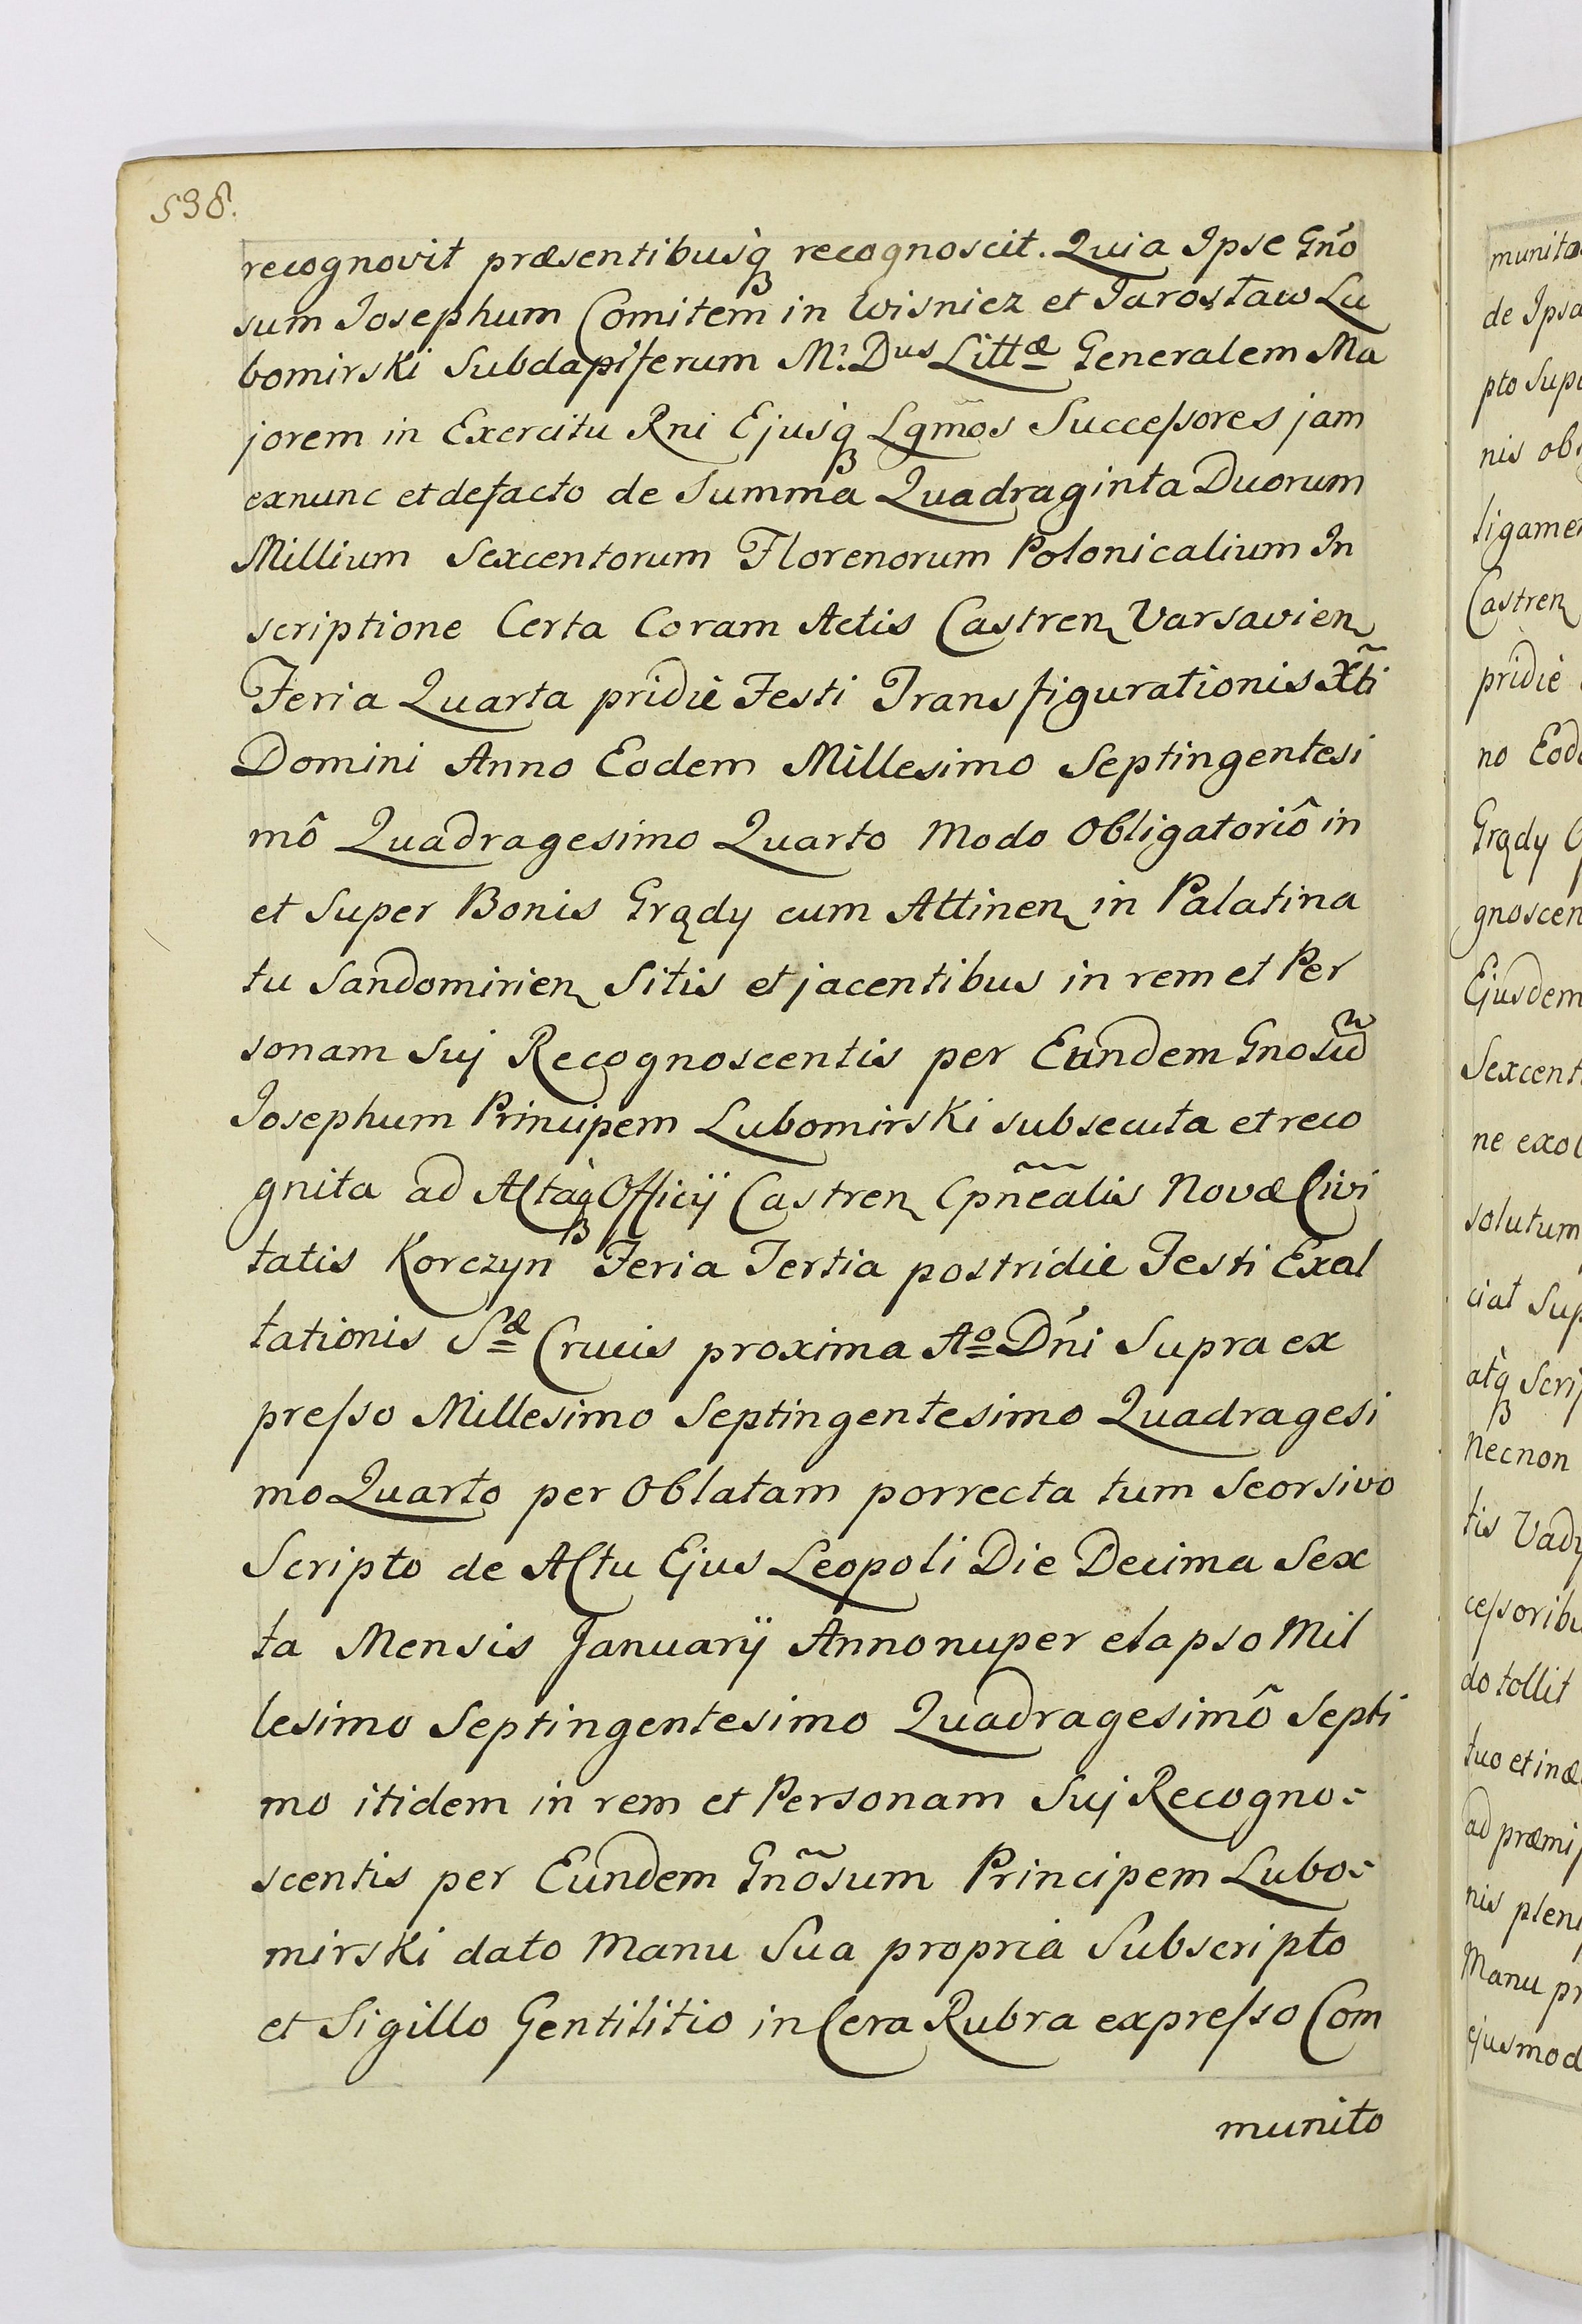 598.
recognovit præsentibusq́ꝫ recognoscit. Quia Ipse Gńo
sum Josephum Comitem in Wisnicz et Jarosław Lu
bomirski Subdapiferum M: Dus Littæ Generalem Ma
jorem in Exercitu Rni Ejusq́ꝫ Lgm̃os Succeſsores jam
exnunc et defacto de Summa Quadraginta Duorum
Millium Sexcentorum Florenorum Polonicalium In
scriptione Certa Coram Actis Castren Varsavien
Feria Quarta pridie Festi Transfigurationis Xt̃i
Domini Anno Eodem Millesimo Septingentesi
mô Quadragesimo Quarto Modo Obligatoriô in
et Super Bonis Grądy cum Attinen in Palatina
tu Sandomirien Sitis et jacentibus in rem et Per
sonam Suj Recognoscentis per Eundem Gnosu͠
Josephum Principem Lubomirski subsecuta et reco
gnita ad Actaq́ꝫ Officij Castren Cpñealis Novæ Civi
tatis Korczyn Feria Tertia postridie Festi Exal
tationis Sæ Crucis proxima Ao Dńi Supra ex
preſso Millesimo Septingentesimo Quadragesi
mo Quarto per Oblatam porrecta tum Seorsivo
Scripto de Actu Ejus Leopoli Die Decima Sex
ta Mensis Januarij Anno nuper elapso Mil
lesimo Septingentesimo Quadragesimô Septi
mo itidem in rem et Personam Suj Recogno-
scentis per Eundem Gnõsum Principem Lubo-
mirski dato Manu Sua propria Subscripto
et Sigillo Gentilitio in Cera Rubra expreſso Com
munito
munita
de Ipsa
pto Sup
nis ob
ligamen
Castren
pridie
no Eod
Grądy
gnoscen
Ejusdem
Sexcent
ne exol
solutum
ciat Sup
atq́ꝫ Scri
Necnon
tis Vady
ceſsoribu
do tollit
tuo et inæ
ad præmiſ
nis plen
Manu pr
ejusmod